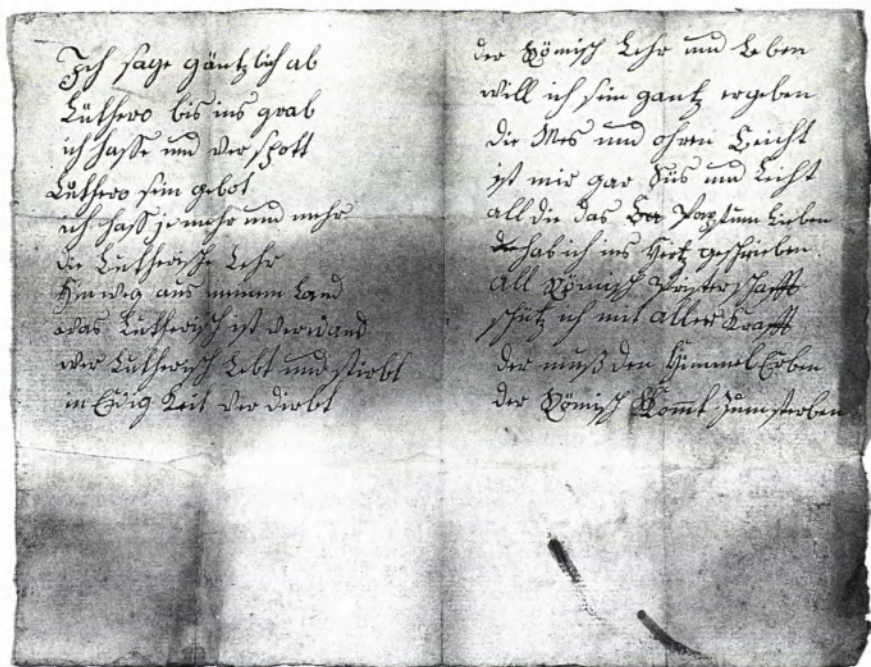 Ich sage gäntzlich ab
Lüthero bis ins grab
ich hasse und verspott
Luthero sein gebot
ich hass je mehr und mehr
die Lutherische Lehr
Hinweg aus meinem Land
was Lutherisch ist verwand
wer Lutherisch Lebt und stirbt
in Ewig Keit ver dirbt
der Römisch Lehr und Leben
will ich sein gantz ergeben
die Mes und ohren Beicht
ist mir gar Süs und Leicht
all die das Paptum Lieben
hab ich ins Hertz geschrieben
all Römisch Pristerschafft
schütz ich mit aller Krafft
der muß den Himmel Erben
der Römisch Kommt zum sterben